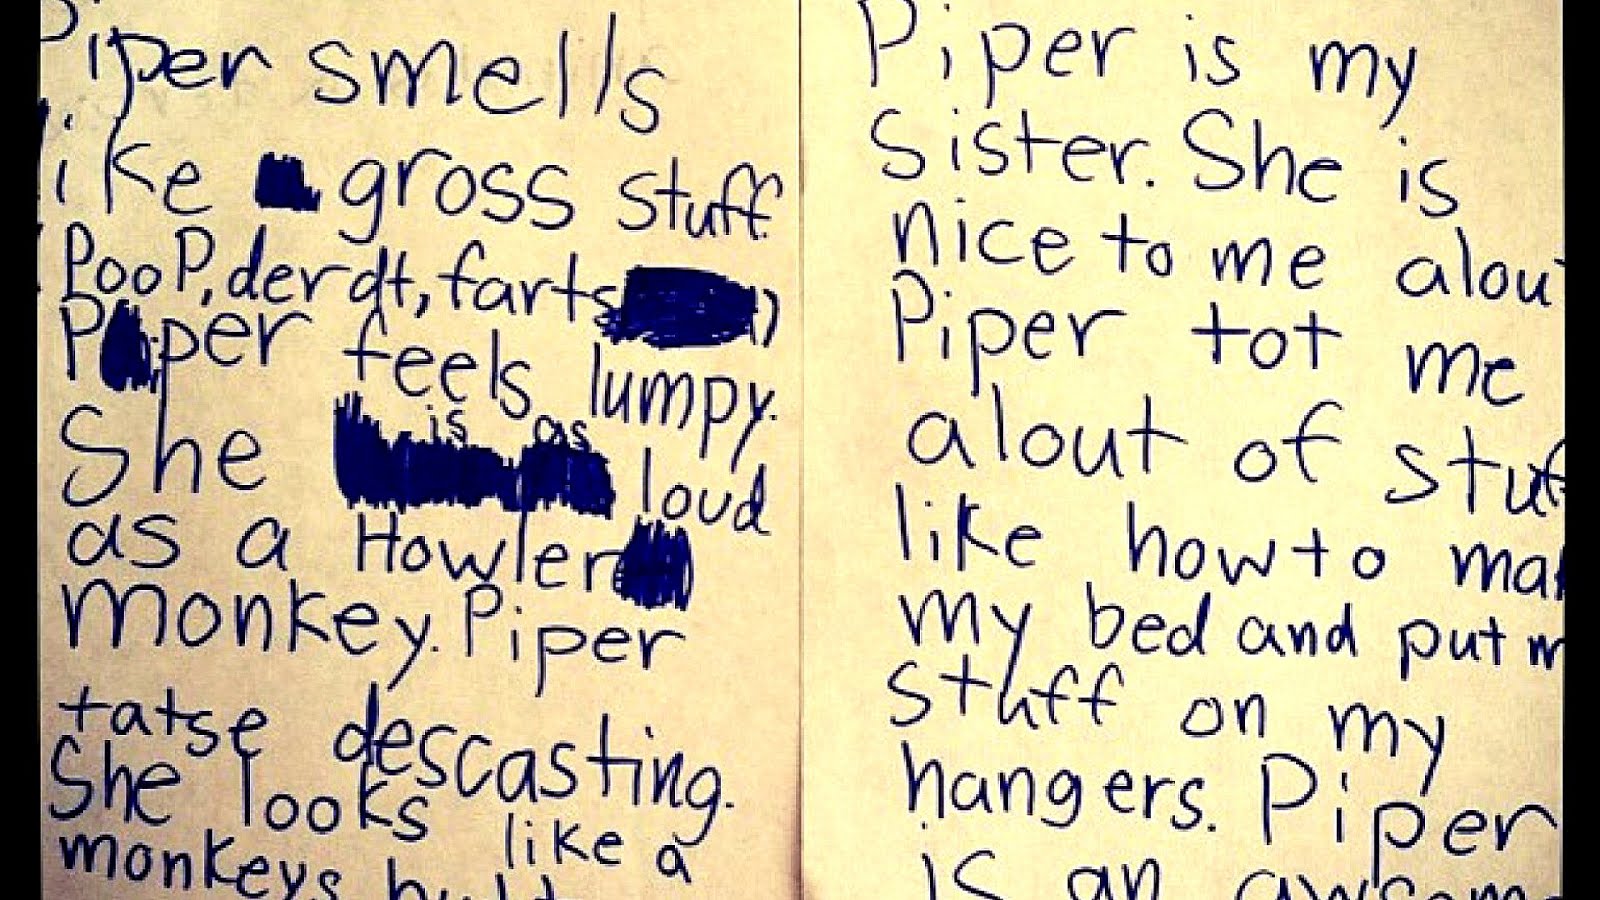 Piper smells
like gross stuff.
(PooP, derdt, farts)
Piper feels lumpy.
She is as loud
as a Howler
monkey. Piper
tatse descasting.
She looks like a
monkeys
Piper is my
Sister. She is
nice to me alout
Piper tot me
alout of stuf
like how to ma
my bed and put m
stuff on my
hangers. Piper
is an awsom